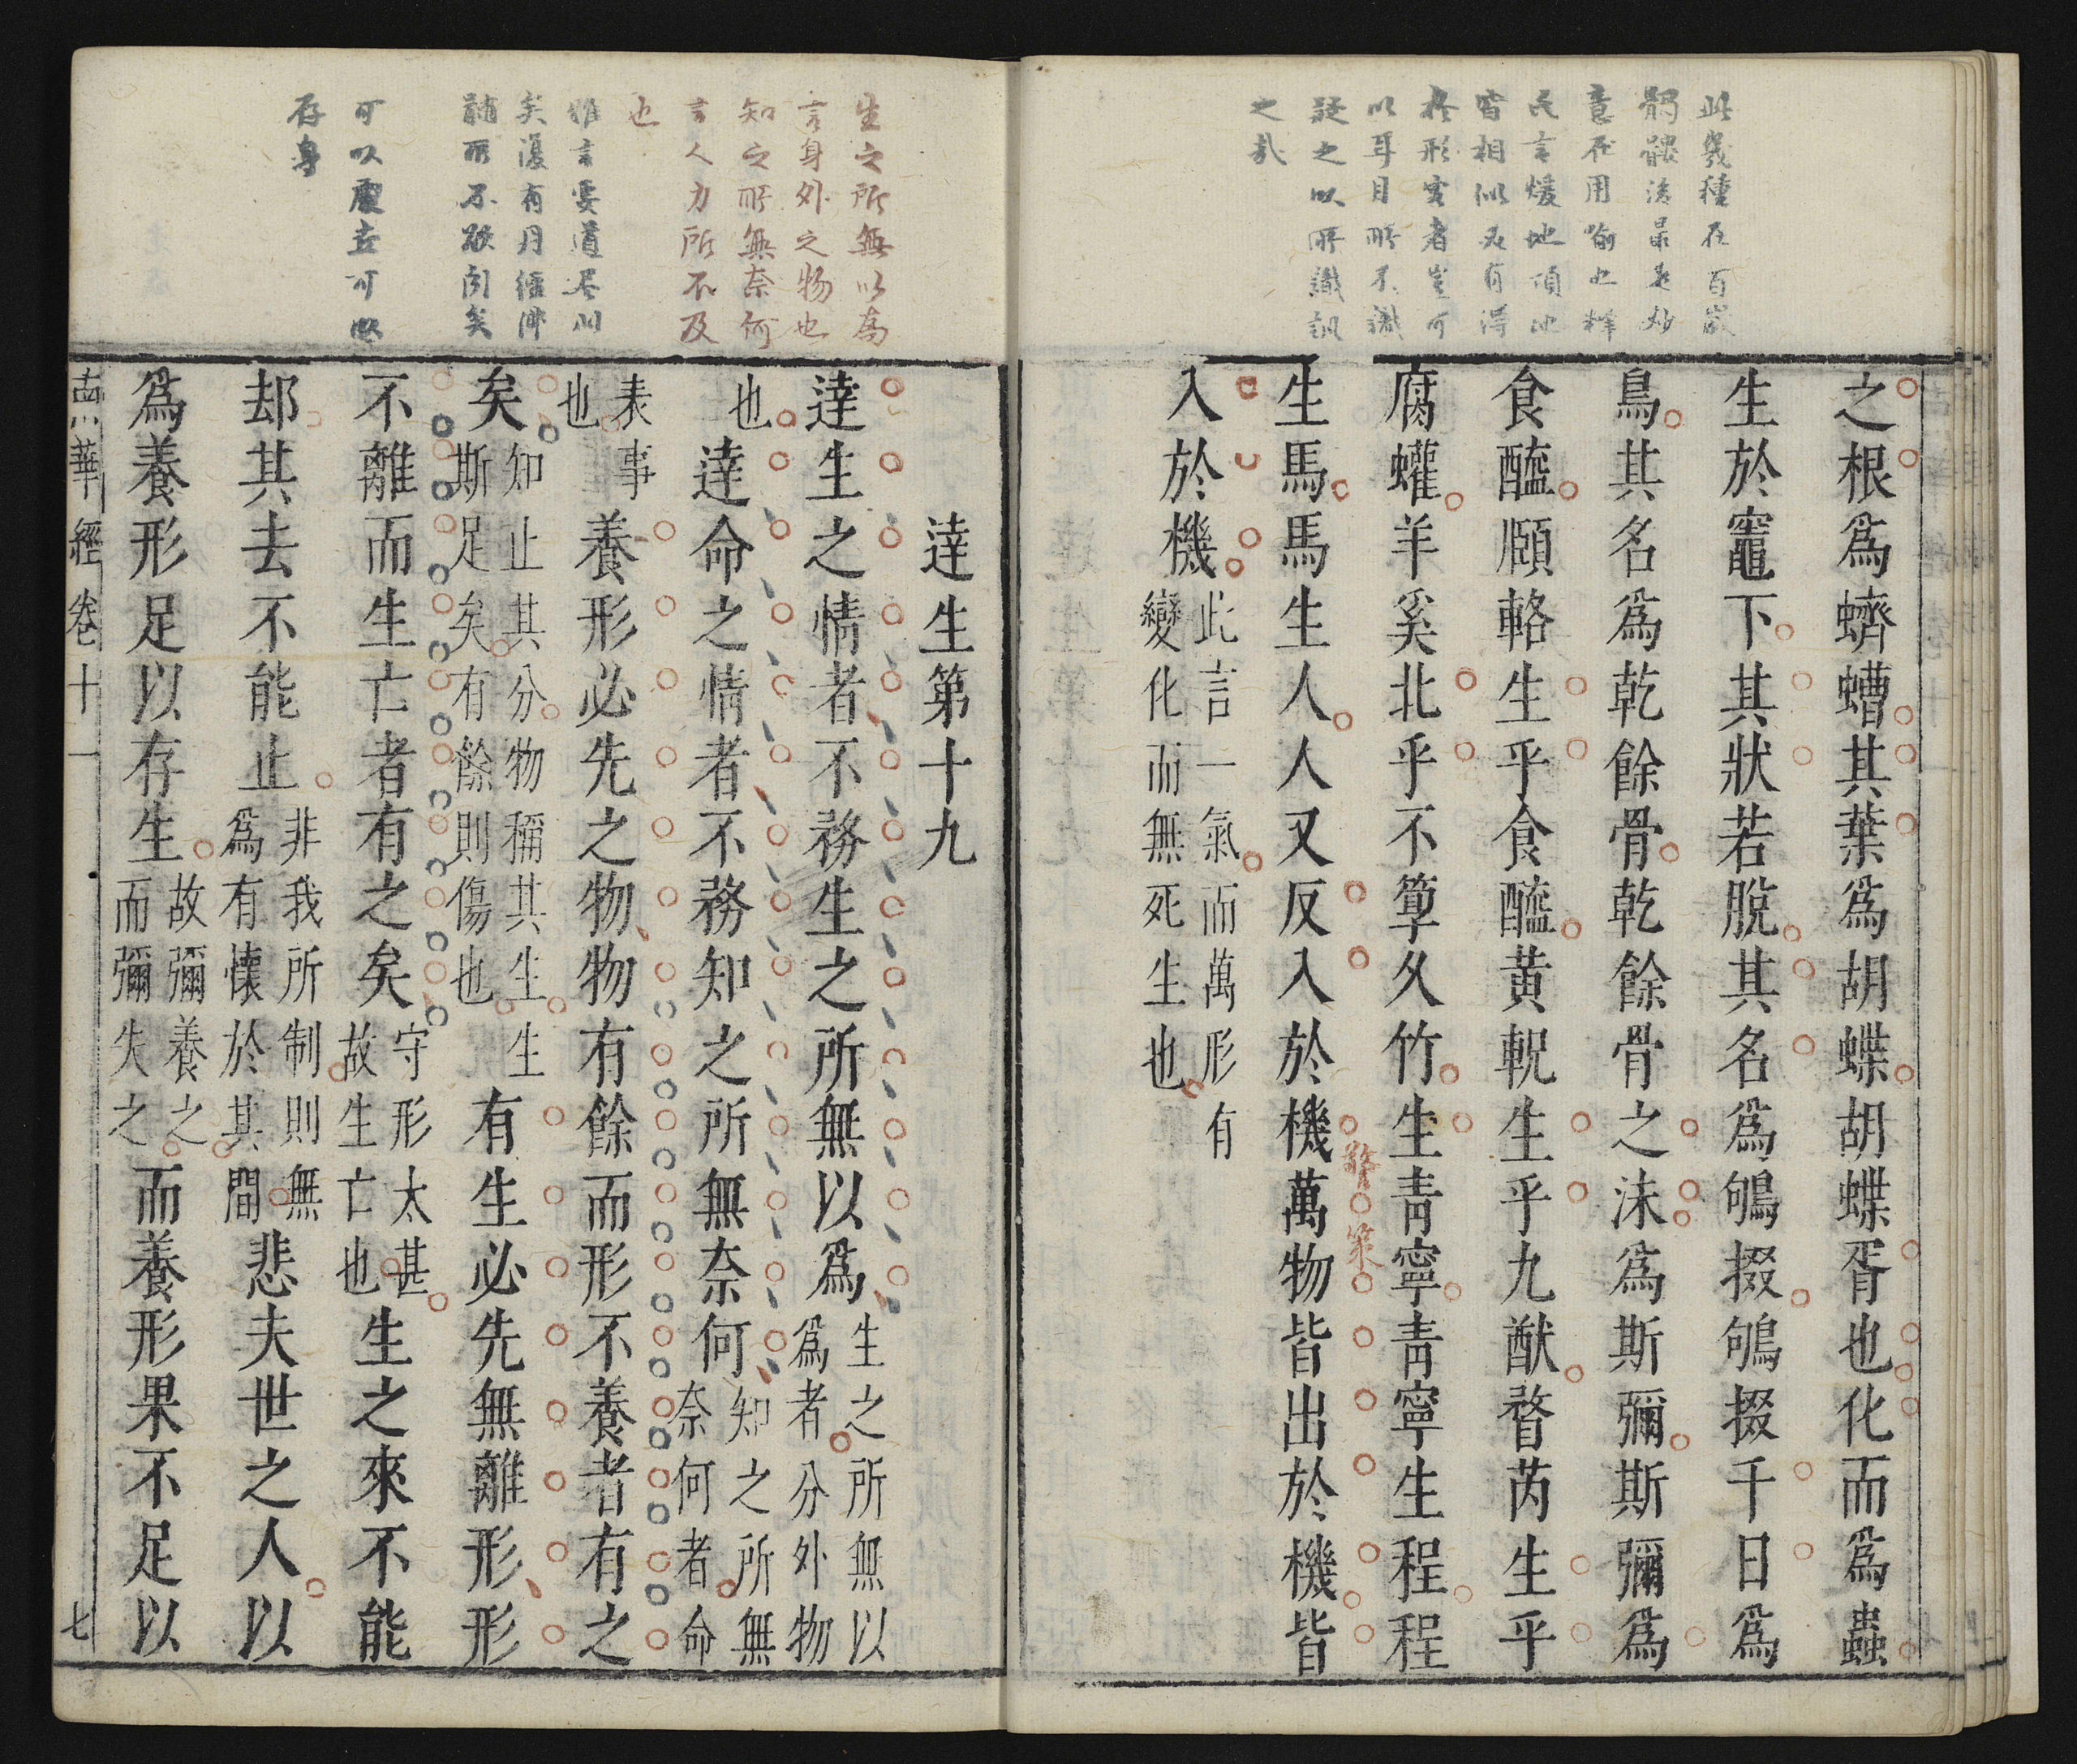 此幾種在百歲
髑髏後最是妙
意在用喻也釋
氏言煖地頂地
皆相似又有得
於形害者豈可
以耳目所不識
疑之以所識訊
之哉
之根為蠐螬其葉為胡蝶胡蝶胥也化而為蟲
生於竈下其狀若脫其名為鴝掇鴝掇千日為
鳥其名為乾餘骨乾餘骨之沬為斯彌斯彌為
食醯頤輅生乎食醯黃軦生乎九猷瞀芮生乎
腐蠸羊奚比乎不箰久竹生青寧青寧生程程
生馬馬生人人又反入於機萬物皆出於機皆
警策
入於機此言一氣而萬形有
變化而無死生也
生之所無以為
言身外之物也
知之所無奈何
言人力所不及
也
雖言要道尽川
矣復有月經伴
髓所不欲閉矣
可以處直可以
存身
達生第十九
達生之情者不務生之所無以為生之所無以
為者分外物
也達命之情者不務知之所無奈何知之所無
奈何者命
表事
也養形必先之物物有餘而形不養者有之
矣知止其分物稱其生生
斯足矣有餘則傷也有生必先無離形形
不離而生亡者有之矣守形太甚
故生亡也生之來不能
却其去不能止非我所制則無
為有懷於其間悲夫世之人以
為養形足以存生故彌養之
而彌失之而養形果不足以
南華經卷十一
七